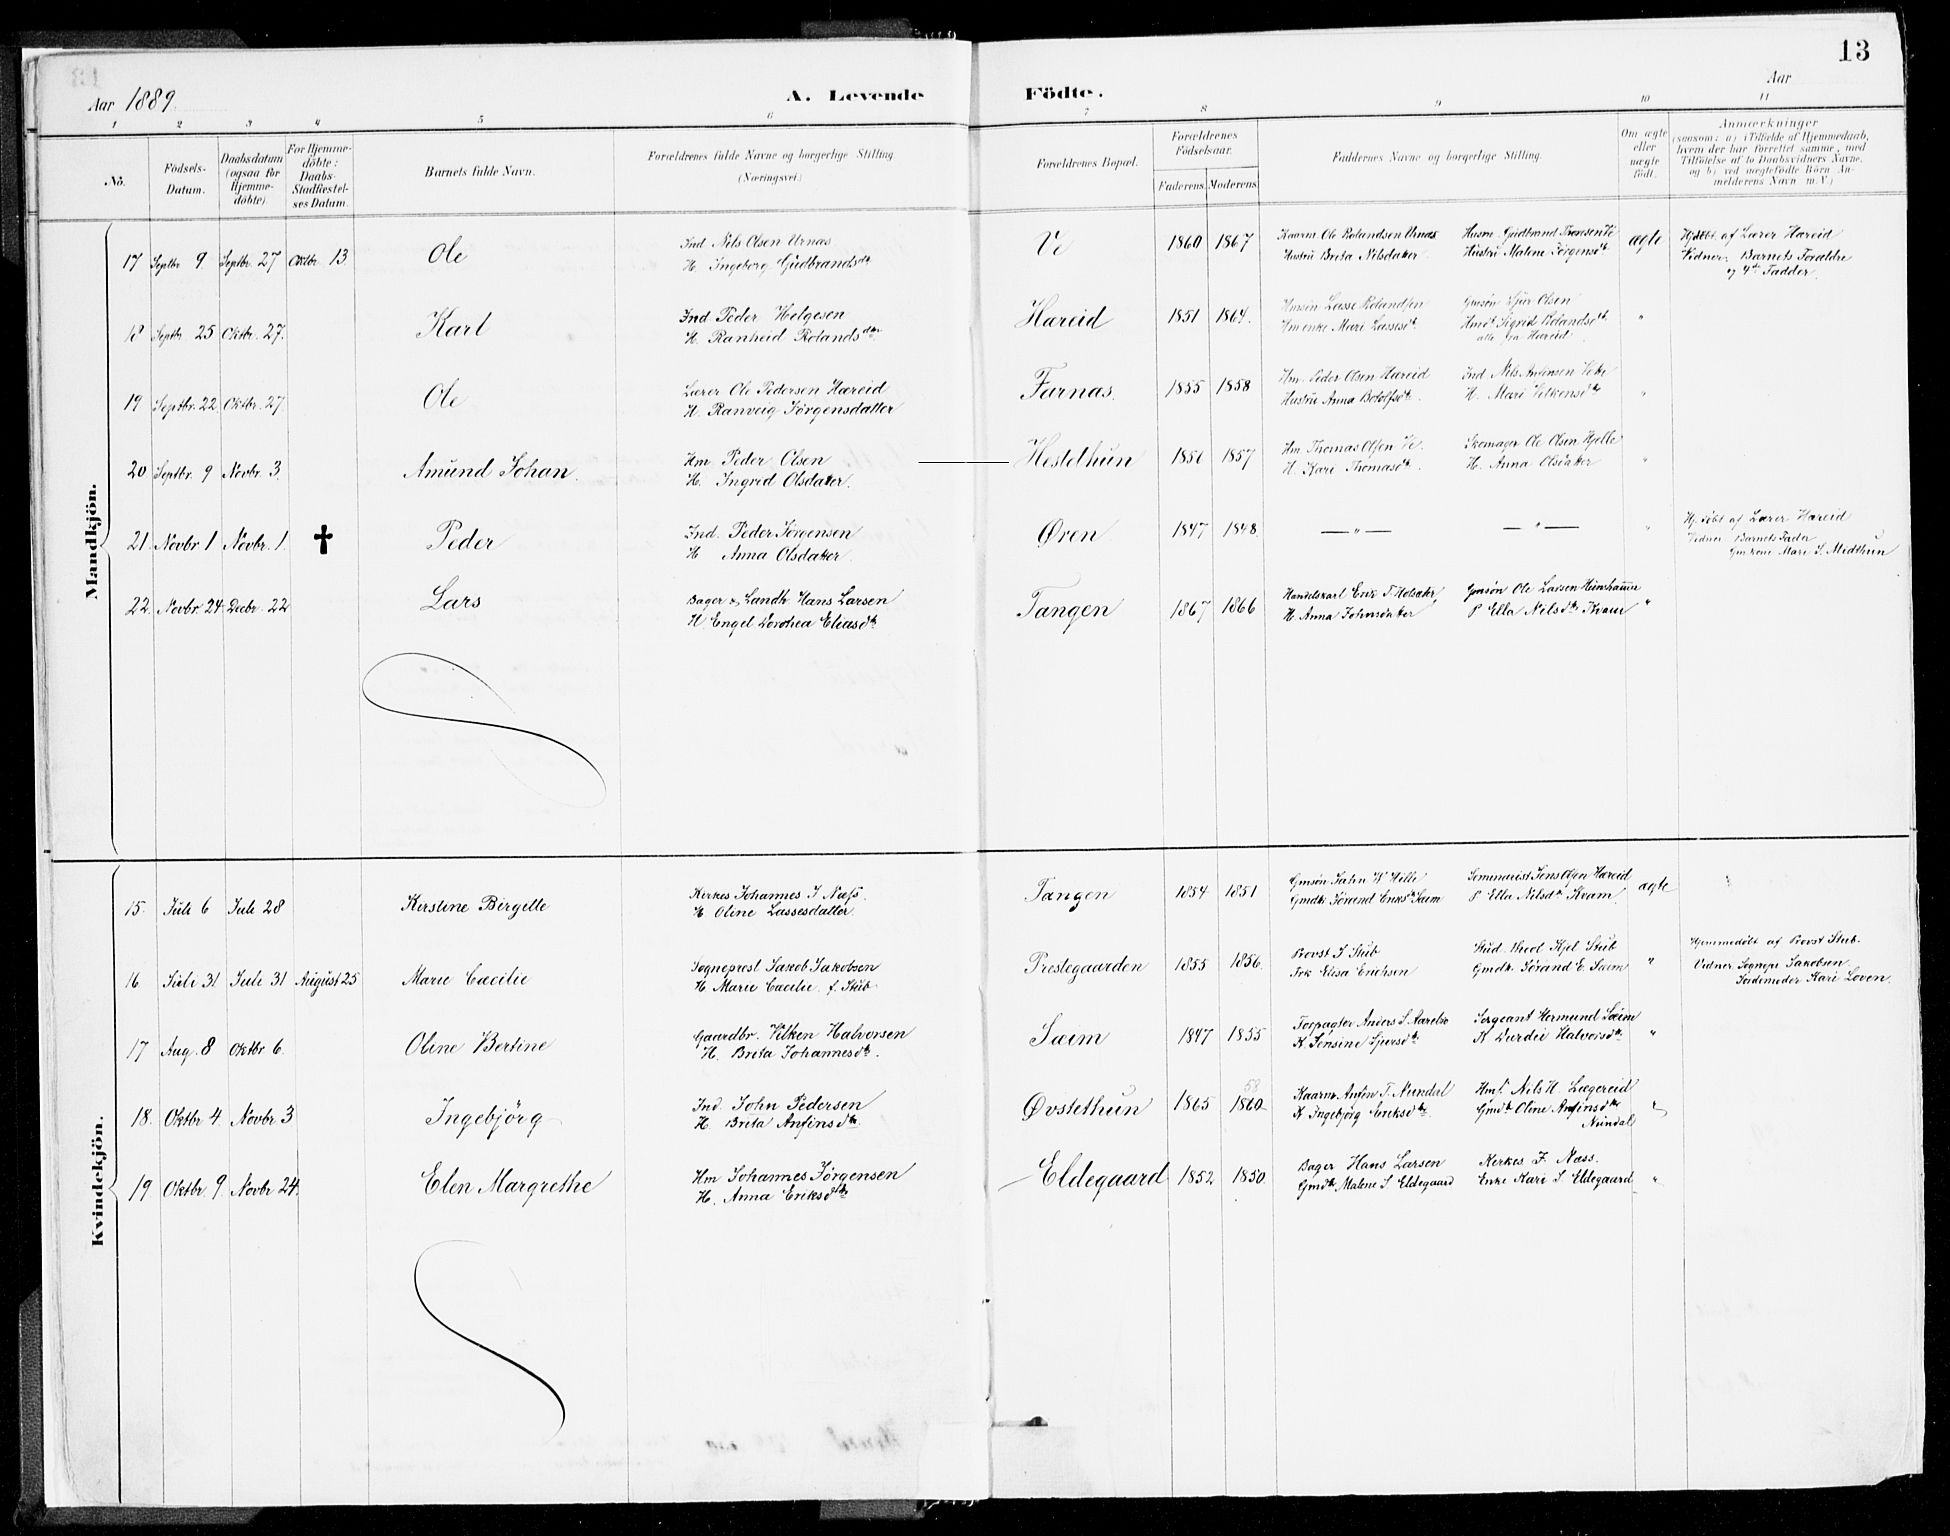 13
Aar 1889. A. Levende Födte. Aar
1 2 3 4 5 6 7 8 9 10 11
No.
Födsels-Datum.
Daabsdatum (ogsaa for Hjemme-döbte).
For Hjemme-döbte: Daabs-Stadfæstel-ses Datum.
Barnets fulde Navn.
Forældrenes fulde Navne og borgerlige Stilling (Næringsvei.)
Forældrenes Bopæl.
Forældrenes Födselsaar.
Faderens. Moderens.
Faddernes Navne og borgerlige Stilling.
Om ægte eller uægte födt.
Anmærkninger
(saasom: a) i Tilfælde af Hjemmedaab,
hvem der har forrettet samme, med
Tilföielse af to Daabsvidners Navne,
og b) ved uægtefödte Börn An-
melderens Navn m. V.)
Mandkjön.
17 Septbr 9. Septbr. 27 Oktbr. 13 Ole
Ind Nils Olsen Urnas
H. Ingeborg Gudbrandsdtr
Ve 1860 1867
Kaarm Ole Rolandsen Urnas
Hustru Brita Nilsdatter.
Husm. Gudbrand Thronsen Ve
Hustru Malene Jörgensdtr
ægte
Hj.döbt. af Lærer Hæreid
Vidner. Barnets Forældre
og 4de Fadder.
18 Septbr 25 Oktbr. 27. Karl
Ind Peder Helgesen
H. Ranheid Rolandsdtr
Hæreid 1851 1864.
Husm Lasse Rolandsen
Hm enke Mari Lassesdt.
Gmsön Sjur Olsen
Hmdt Sigrid Rolandsdt.
alle fra Hæreid.
"
19 Septbr. 22 Oktbr. 27. Ole
Lærer Ole Pedersen Hæreid
H. Ranveig Jörgensdatter
Farnas. 1855 1858
Hm. Peder Olsen Hæreid
Hustru Anna Botolfsdtr.
Ind Nils Anfinsen
H. Mari Vilkensdtr
"
20 Septbr. 9 Novbr. 3. Amund Johan.
Hm Peder Olsen
H. Ingrid Olsdatter.
Hestethun 1857
Hm Thomas Olsen Ve.
H. Kari Thomasdt.
Skomager Ole Olsen Hjelle
H. Anna Olsdatter
"
21. Novbr 1 Novbr. 1. ✝ Peder
Ind. Peder Jörgensen
H Anna Olsdatter.
Øren 1847 1848
— " — — " — "
Hj. döbt af Lærer Hæreid
Vidner Barnets Fader
Gm kone Mari S. Midthun
22. Novbr. 24 Decbr. 22 Lars
Bager & Landh. Hans Larsen
H. Engel Dorothea Eliasdt.
Tangen 1867 1866
Handelskarl Erik T.
H. Anna Johnsdatter
Gmsön Ole Larsen
P Ella Nilsdtr Kvam
"
Kvindekjön.
15. Juli 6 Juli 28 Kirstine Birgitte
Kirkes Johannes J Næss.
H Oline Lassesdatter.
Tangen 1854 1851
Gmsön John W Helle
Gmdtr. Sörand Eriksdtr Sæim
Seminarist Jens Olsen Hæreid
P Ella Nilsdtr Kvam.
ægte
16 Juli 31 Juli 31 August 25 Marie Cæcilie
Sogneprest Jakob Jakobsen
H. Marie Cæcilie f. Stub
Prestegaarden 1855 1856.
Provst J Stub
Frk Elisa Erichsen
Stud. theol Kjel Stub
Gmdtr. Sörand E. Sæim
"
Hjemmedöbt af Provst Stub.
Vidner Sognepr Jakobsen
Jordemoder Kari Loven.
17 Aug. 8 Oktbr 6. Oline Bertine
Gaardbr. Vilken Halvorsen
H. Brita Johannesdtr.
Sæim 1847 1855
Forpagter Anders S Aarebo
K. Jensine Sjursdtr
Sergeant Hermund Sæim
K Durdei Halvorsdtr.
"
18. Oktbr 4. Novbr 3 Ingebjörg
Ind. John Pedersen
H. Brita Anfinsdtr.
58
Øvstethun 1865 1860
Kaarm Anfin T. Nundal
K Ingebjörg Eriksdtr.
Hmf. Nils H. Lægereid
Gmdtr Oline Anfinsdtr
Nundal
"
19 Oktbr. 9. Novbr 24. Elen Margrethe
Hm Johannes Jörgensen
H. Anna Eriksdtr
Eldegaard 1852 1850
Bager Hans Larsen
Gmdtr Malene S. Eldegaard
Kirkes J. Næss.
Enke Kari S Eldegaard
"